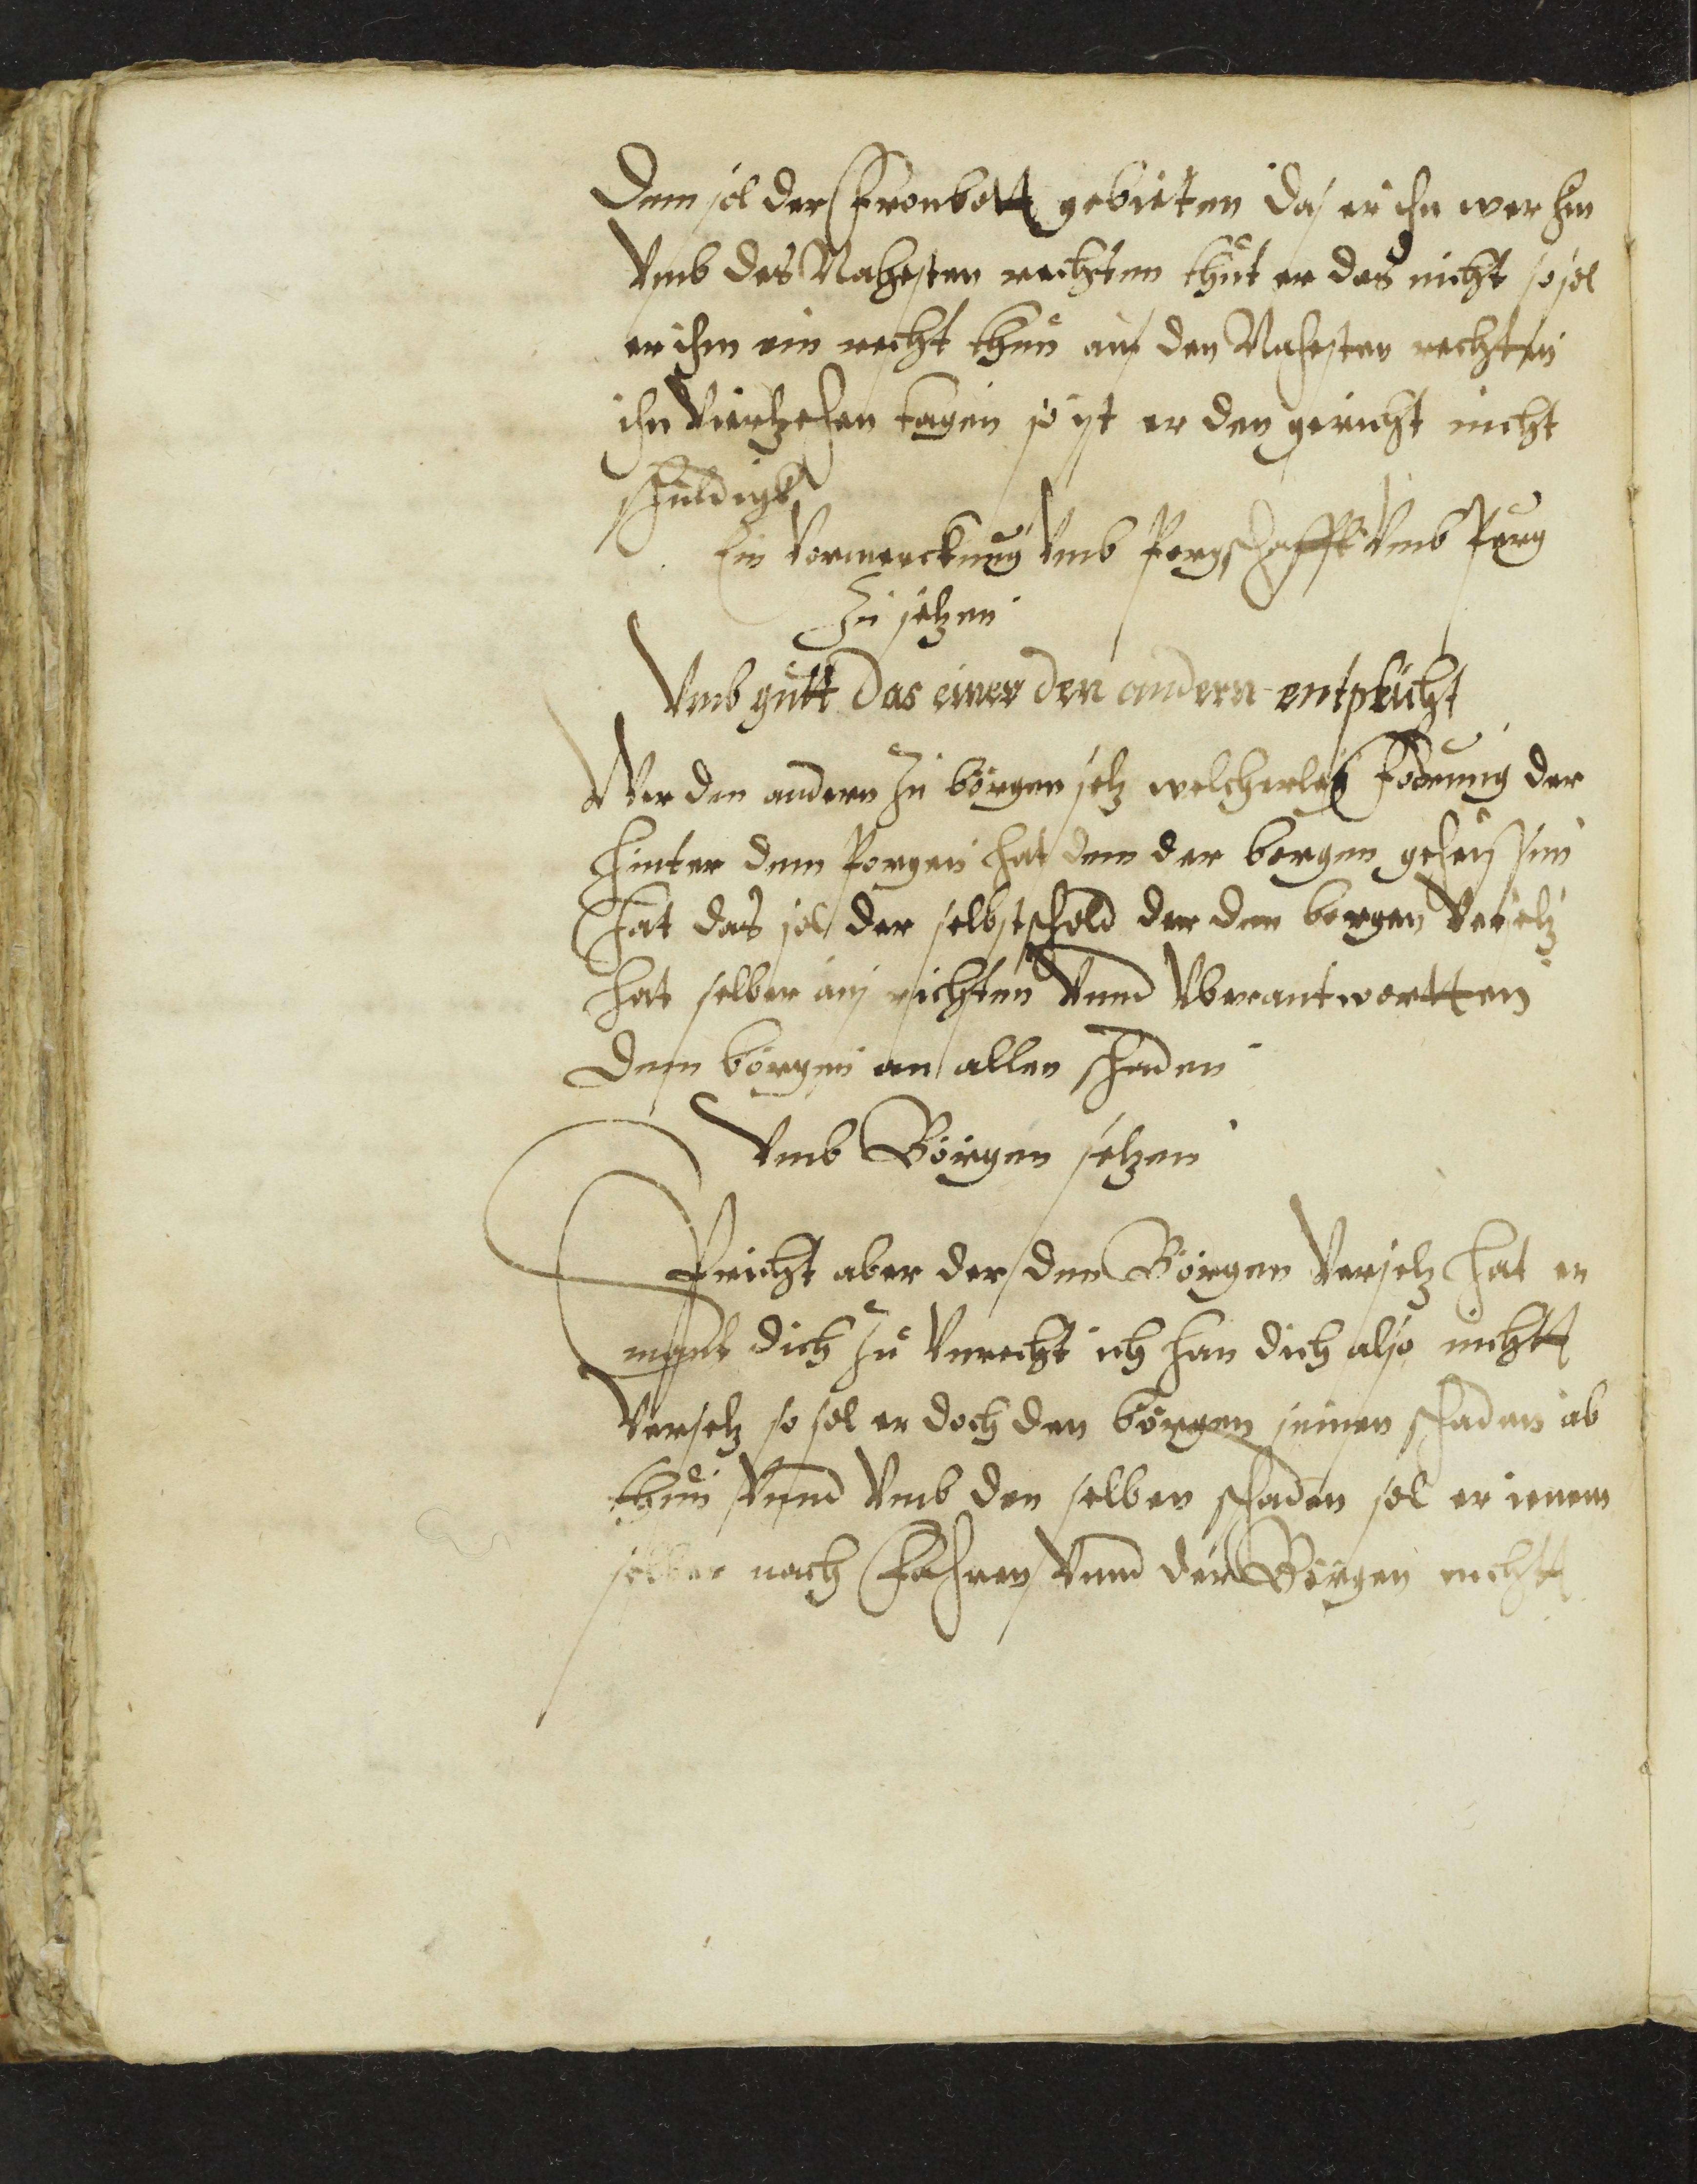 Dem sol der Fronbott gebieten das er ihn wer hin
Vmb des Nahesten rechten thut er das nicht so sol
er ihm ein recht thun auf den Nahesten rechten
ihn Viertzehen tagen so ist er den gericht nicht
schuldigk
Ein Vormerckung Vmb Porgschafft Vmb Purg
Zu setzen
Vmb gutt Das einer den andern entpricht
Wer den andern Zu börgen setz welcherley Fodrung der
hinter dem Porgen hat dem der borgen geheissen
hat das sol der selbstschold der den borgen Versetz
hat selber aus richten Vnnd Vberantwortten
dem börgen an allen schaden
Vmb Börgen setzen
Spricht aber der den Börgen Versetz hat er
mant dich Zu Vnrecht ich han dich also nichtt
Versetz so sol er doch den börgen seinen schaden ab
thun Vnnd Vmb den selben schaden sol er ienem
selber nach Fahren Vnnd der Börgen nichtt